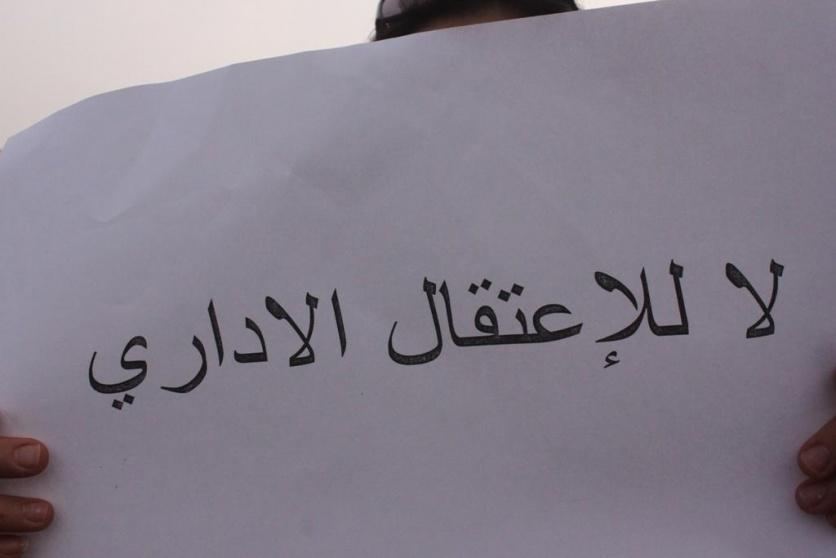 لا للإعتقال الاداري